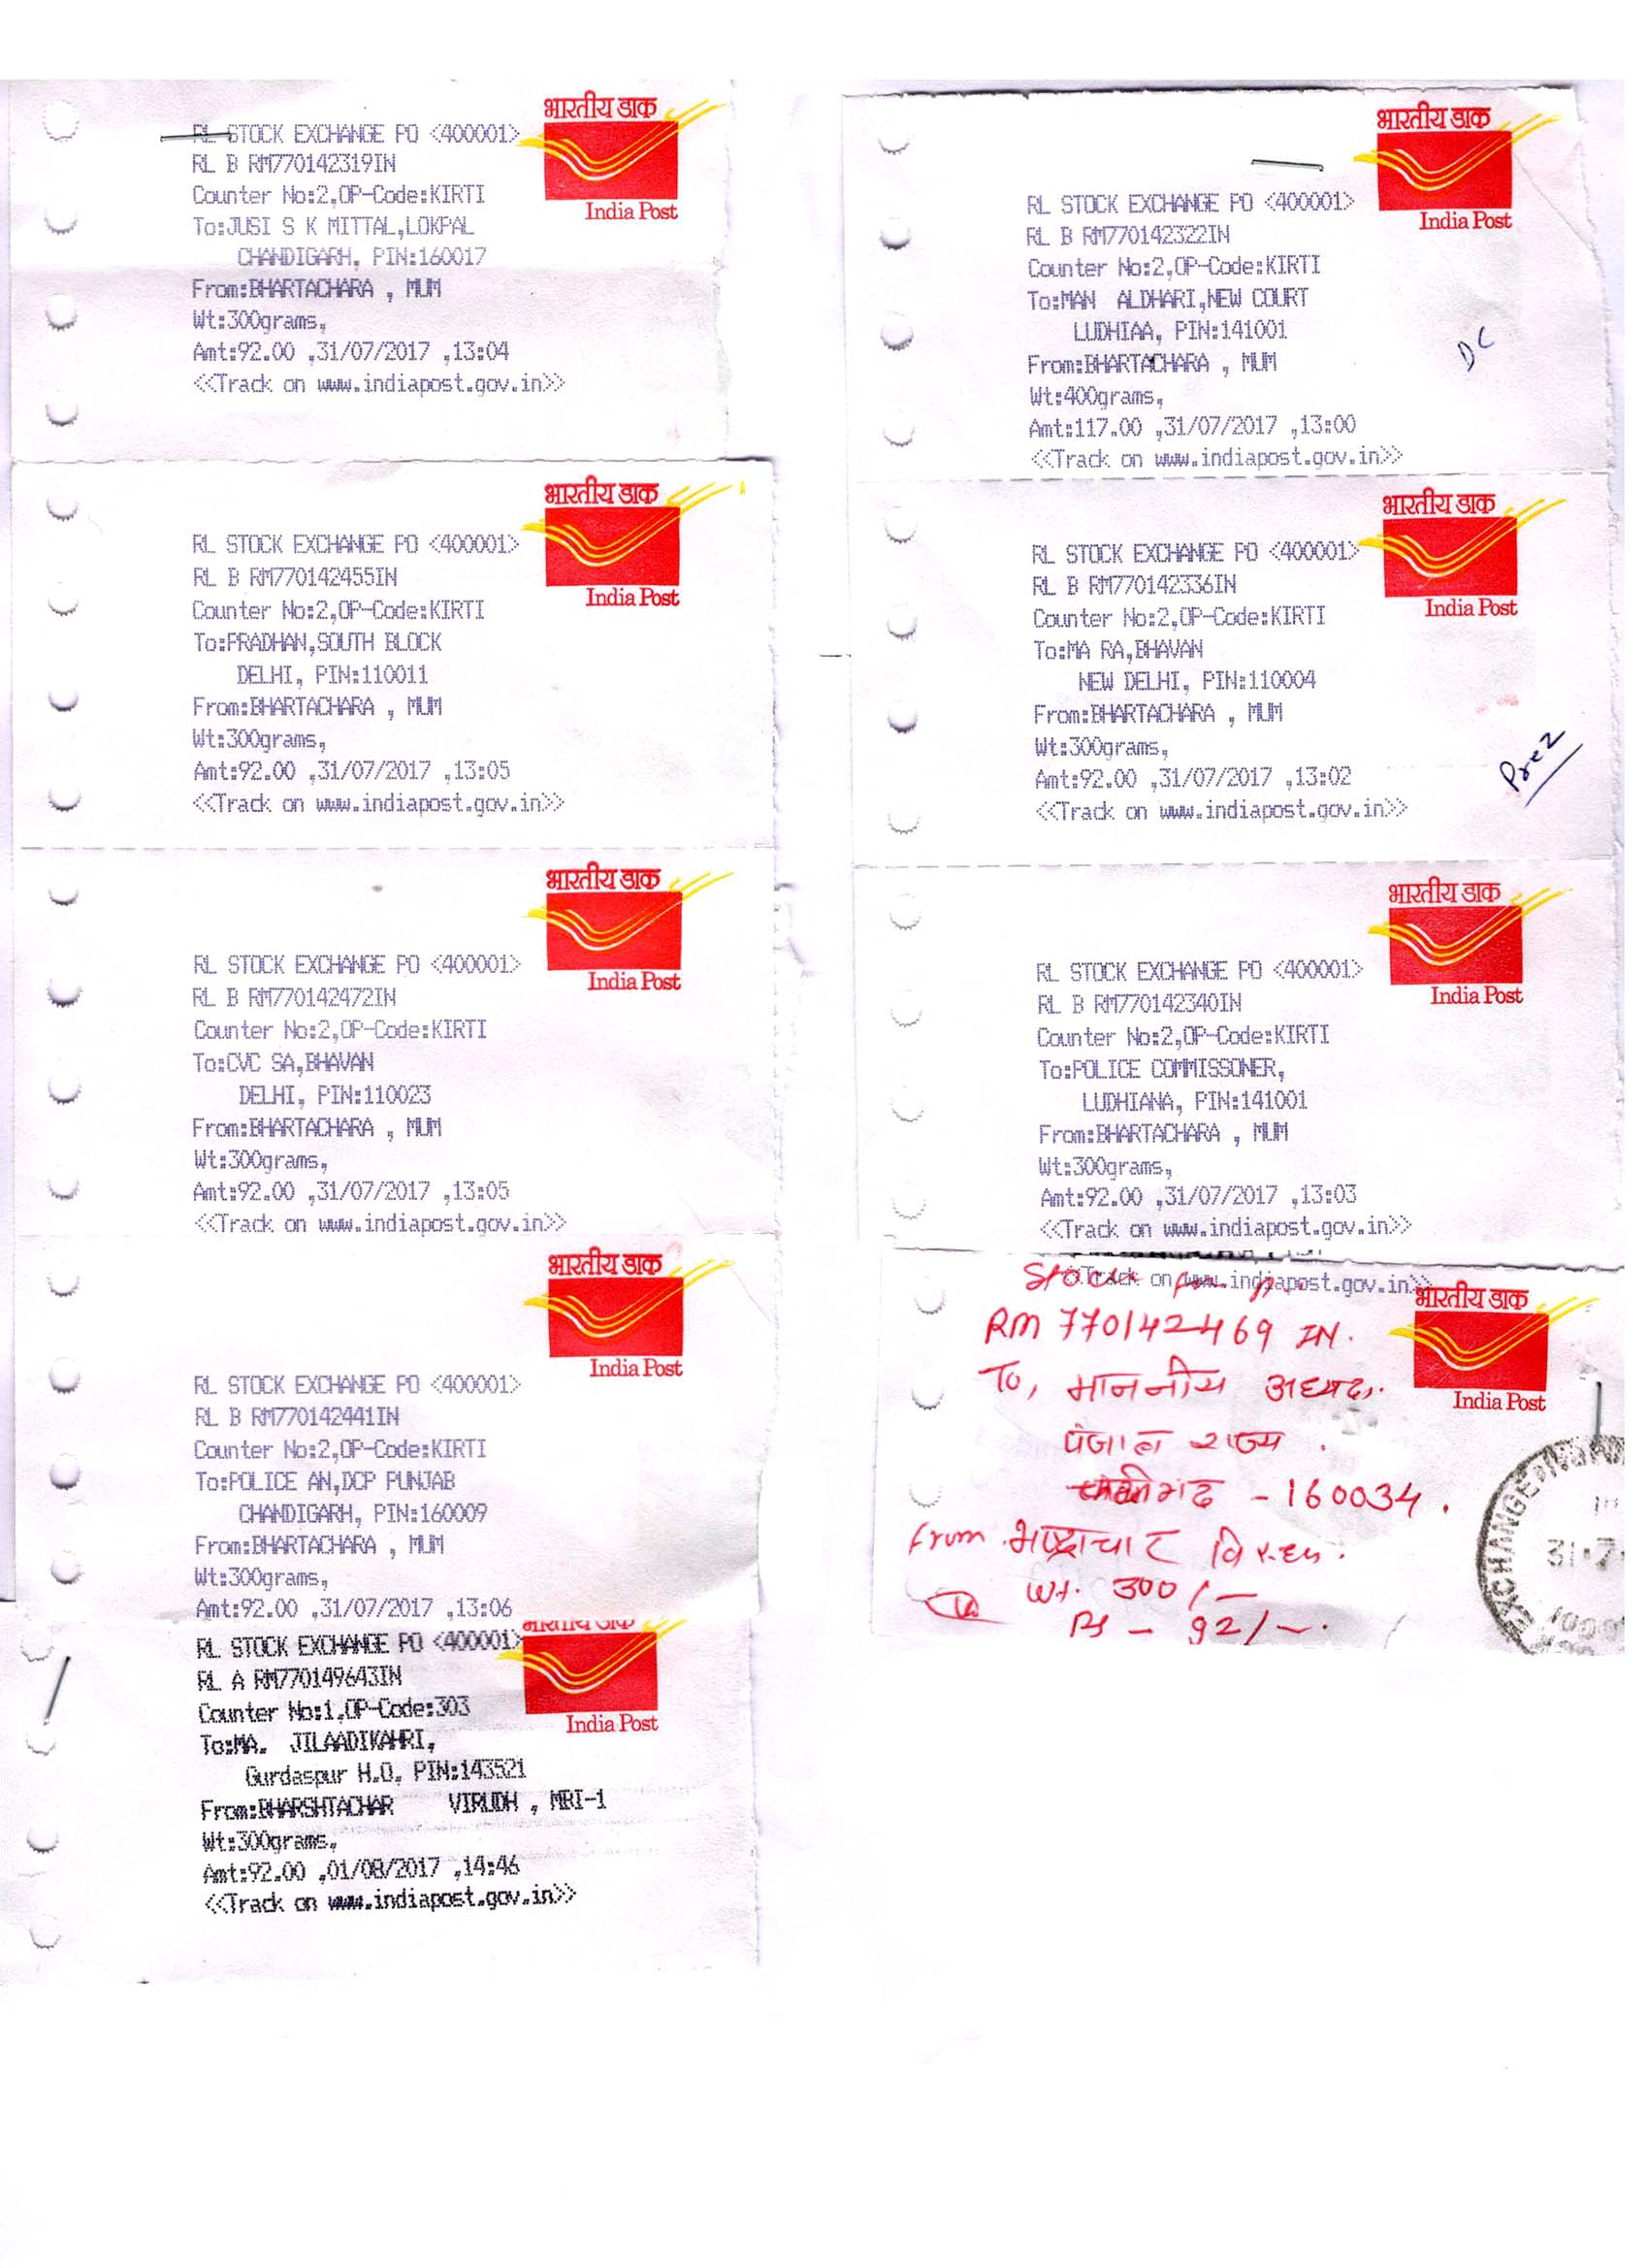 भारतीय डाक
RL STOCK EXCHANGE PO <400001>
RL B RM770142319IN
India Post
Counter No:2,OP-Code:KIRTI
To:JUSI S K MITTAL,LOKPAL
CHANDIGARH, PIN:160017
From:BHARTACHARA , MUM
Wt:300grams,
Amt:92.00 ,31/07/2017 ,13:04
<<Track on www.indiapost.gov.in>>
भारतीय डाक
India Post
RL STOCK EXCHANGE PO <400001>
RL B RM770142455IN
Counter No:2,OP-Code:KIRTI
To:PRADHAN,SOUTH BLOCK
DELHI, PIN:110011
From:BHARTACHARA , MUM
Wt:300grams,
Amt:92.00 ,31/07/2017 ,13:05
<<Track on www.indiapost.gov.in>>
भारतीय डाक
India Post
RL STOCK EXCHANGE PO <400001>
RL B RM770142472IN
Counter No:2,OP-Code:KIRTI
To:CVC SA,BHAVAN
DELHI, PIN:110023
From:BHARTACHARA , MUM
Wt:300grams,
Amt:92.00 ,31/07/2017 ,13:05
<<Track on www.indiapost.gov.in>>
भारतीय डाक
India Post
RL STOCK EXCHANGE PO <400001>
RL B RM770142441IN
Counter No:2,OP-Code:KIRTI
To:POLICE AN,DCP PUNJAB
CHANDIGARH, PIN:160009
From:BHARTACHARA , MUM
Wt:300grams,
Amt:92.00 ,31/07/2017 ,13:06
भारतीय डाक
RL STOCK EXCHANGE PO <400001>
RL A RM770149643IN
Counter No:1,OP-Code:303
India Post
To:MA. JILAADIKAHRI,
Gurdaspur H.O, PIN:143521
From:BHARSHTACHAR VIRUDH , MBI-1
Wt:300grams,
Amt:92.00 ,01/08/2017 ,14:46
<<Track on www.indiapost.gov.in>>
भारतीय डाक
India Post
RL STOCK EXCHANGE PO <400001>
RL B RM770142322IN
Counter No:2,OP-Code:KIRTI
To:MAN ALDHARI,NEW COURT
LUDHIAA, PIN:141001
DC
From:BHARTACHARA , MUM
Wt:400grams,
Amt:117.00 ,31/07/2017 ,13:00
<<Track on www.indiapost.gov.in>>
भारतीय डाक
India Post
RL STOCK EXCHANGE PO <400001>
RL B RM770142336IN
Counter No:2,OP-Code:KIRTI
To:MA RA,BHAVAN
NEW DELHI, PIN:110004
From:BHARTACHARA , MUM
Wt:300grams,
Prez
Amt:92.00 ,31/07/2017 ,13:02
<<Track on www.indiapost.gov.in>>
भारतीय डाक
India Post
RL STOCK EXCHANGE PO <400001>
RL B RM770142340IN
Counter No:2,OP-Code:KIRTI
To:POLICE COMMISSONER,
LUDHIANA, PIN:141001
From:BHARTACHARA , MUM
Wt:300grams,
Amt:92.00 ,31/07/2017 ,13:03
<<Track on www.indiapost.gov.in>>
<<Track on www.indiapost.gov.in>>
भारतीय डाक
India Post
RM 770142469 IN.
To, माननीय अध्यक्ष.
पंजाब राज्य .
- 160034 .
From भ्रष्टाचार विरुद्ध.
Wt. 300/-
Rs - 92/-.
EXCHANGE
31·7